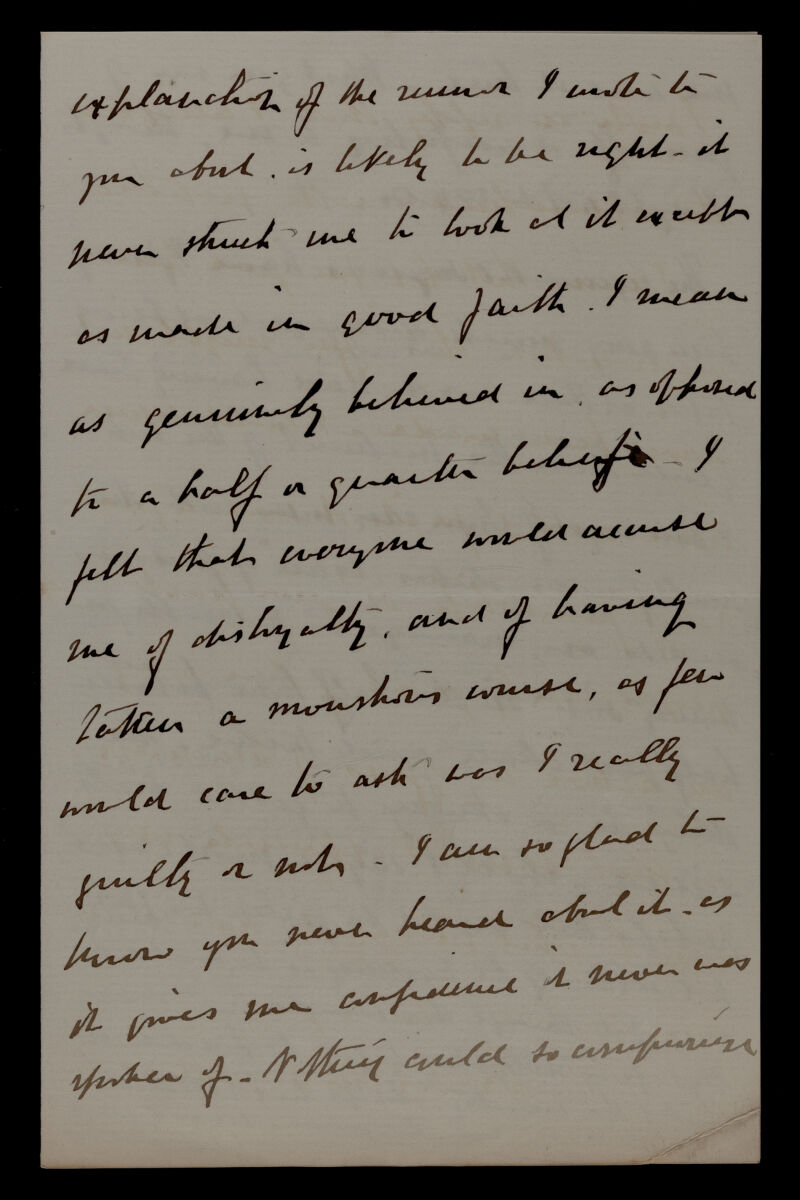 explanation of the rumor I wrote to
you about. is likely to be right - it
never struck me to look at it except
as made in good faith. I mean
as genuinely believed in, as opposed
to a half or quarter belief - I
felt that everyone would accuse
me of disloyalty, and of having
taken a monstrous course, as few
would care to ask was I really
guilty or not - I am so glad to
know you never heard about it - as
it gives me confidence it never was
spoken of - Nothing could so compromise